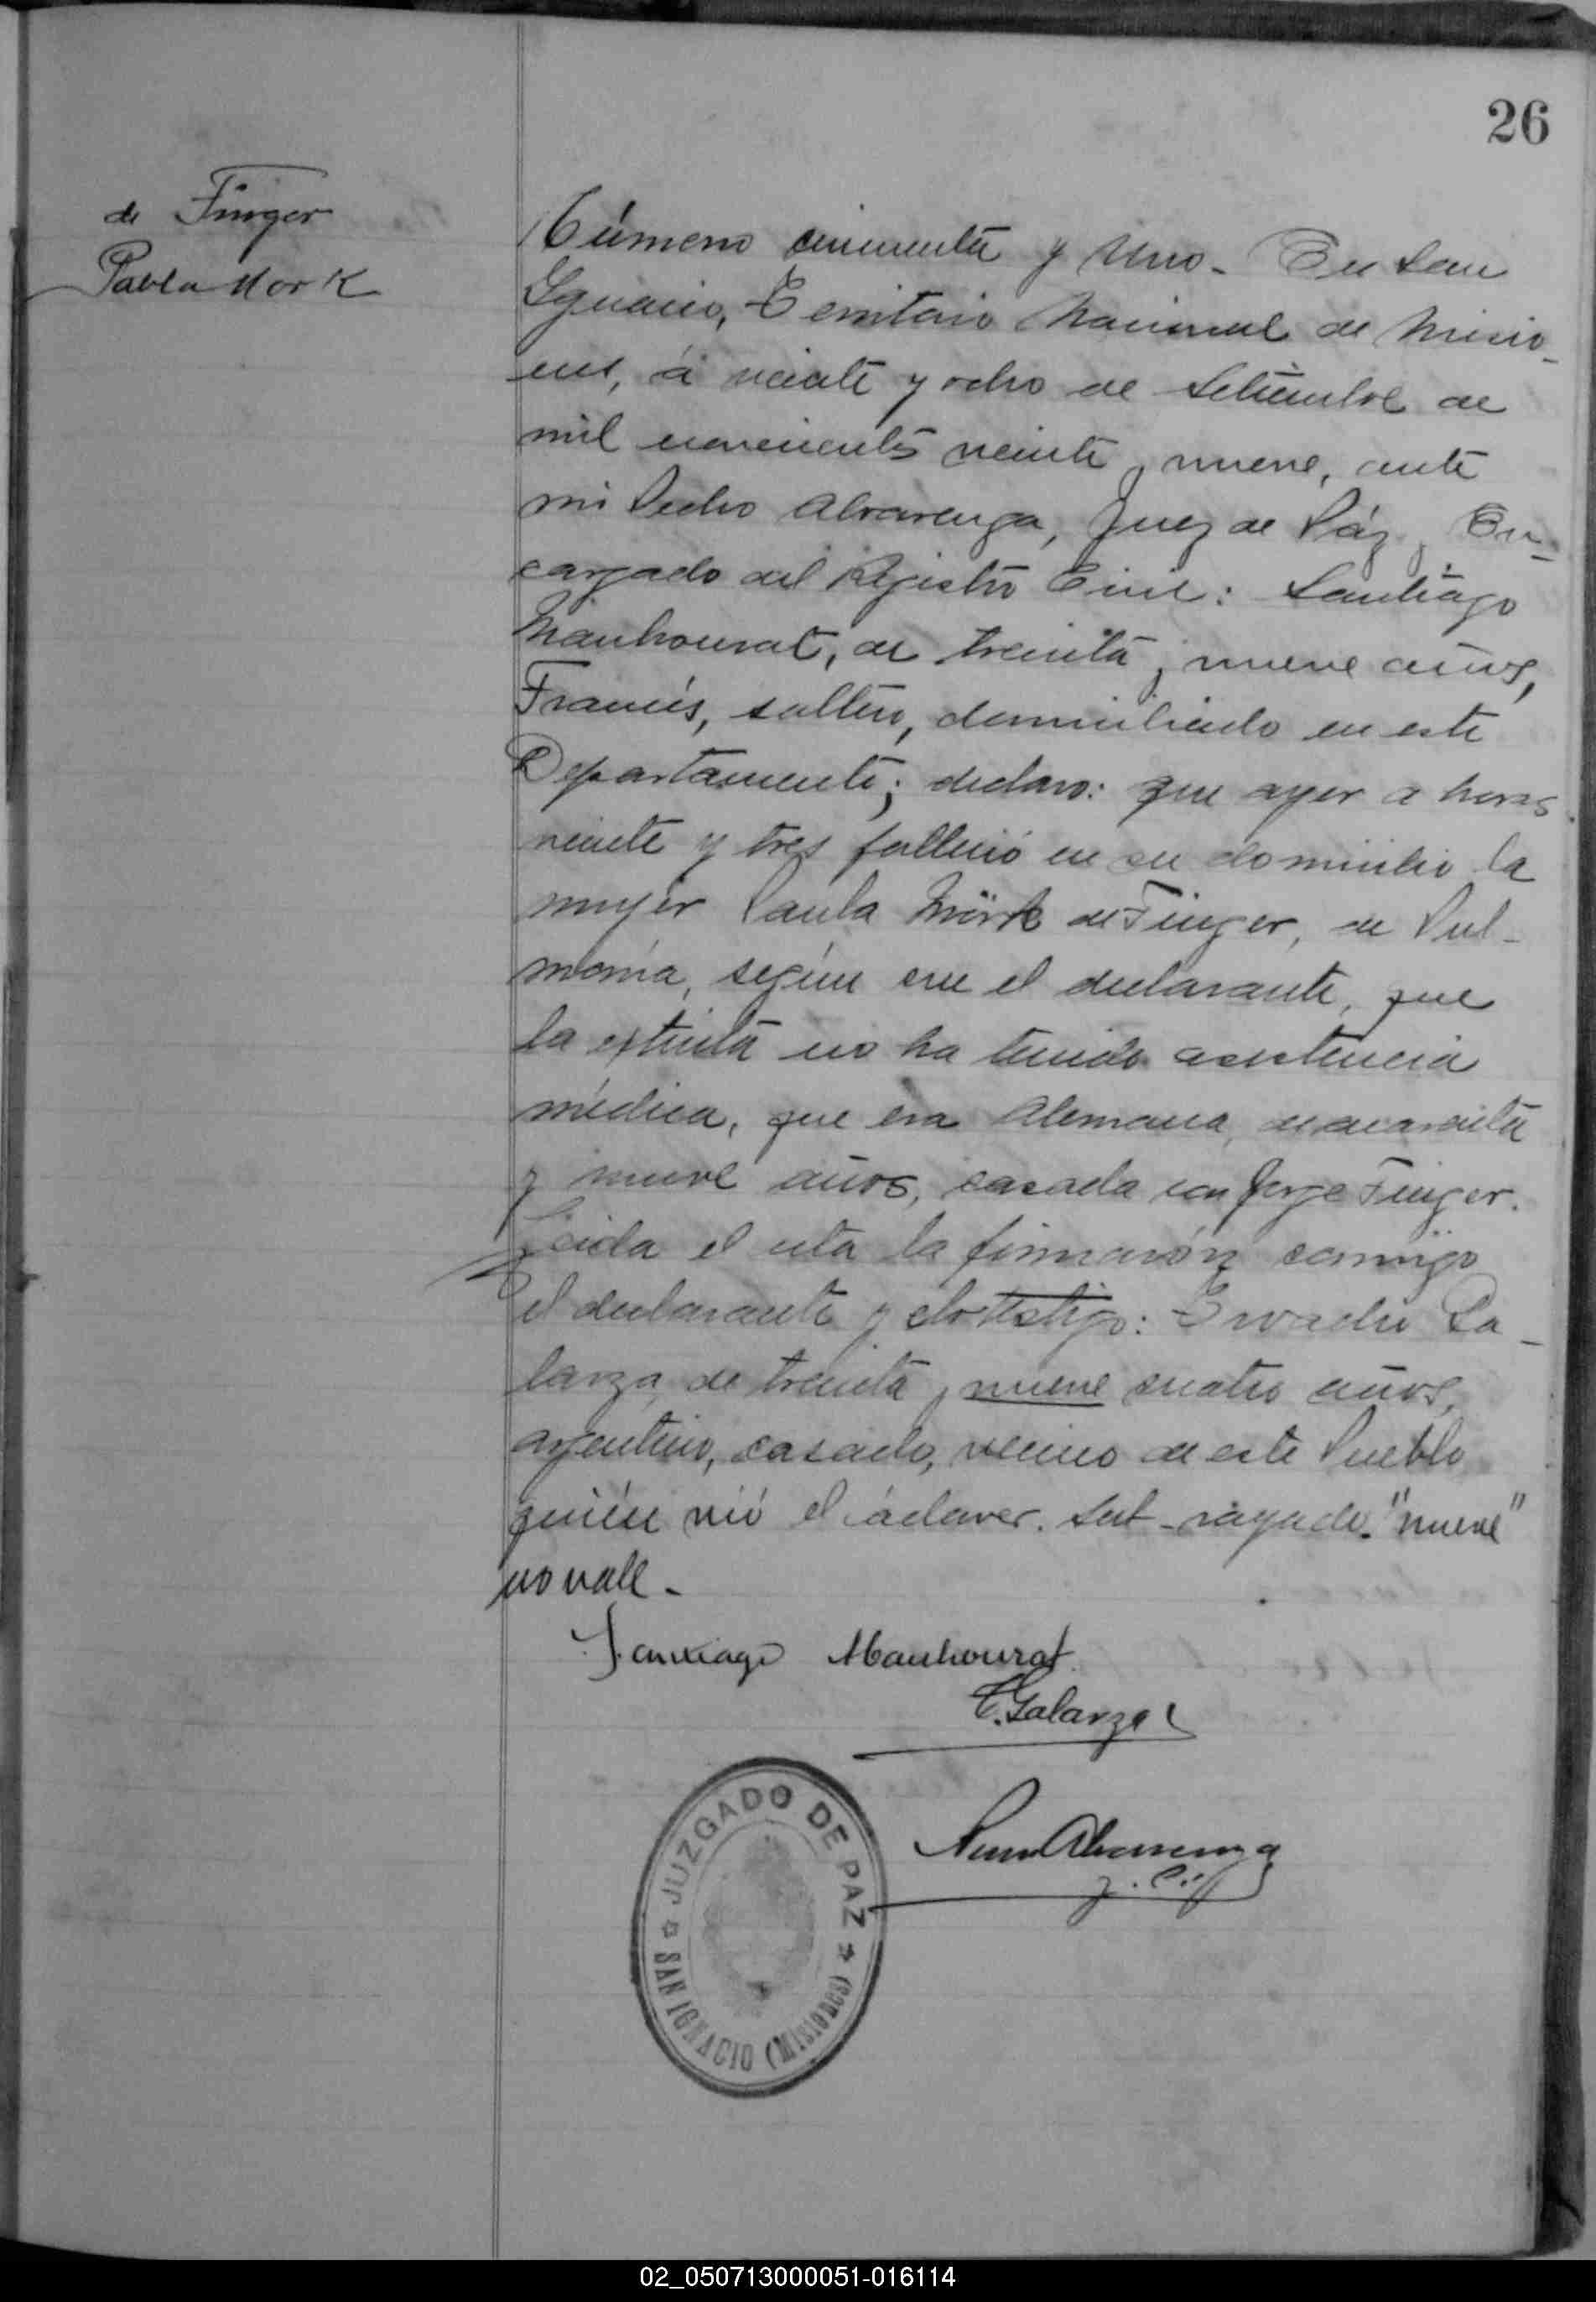 26
de Finger
Pabla Mork
Número cincuenta y Uno. En San
Ygnacio, Territorio Nacional de Misio-
nes, á veinte y ocho de Setiembre de
mil novecientos veinte y nueve, ante
mi Pedro Alvarenga, Juez de Páz y En-
cargado del Registro Civil: Santiago
Manhourat, de treinta y nueve años,
Francés, soltero, domiciliado en este
Departamento; declaro: que ayer a horas
veinte y tres falleció en su domicilio la
mujer Paula Mörk de Finger, de Pul-
monía, según cree el declarante, que
la extinta no ha tenido asistencia
médica, que era Alemana, de cuarenta
y nueve años, casada con Jorge Finger.
Leida el acta la firmarón conmigo
el declarante y el testigo: Evadio Ga-
larza, de treinta y nueve cuatro años,
argentino, casado, vecino de este Pueblo
quién vió el cádaver. Sub-rayado "nueve"
no vale -
Santiago Manhourat
E. Galarza
Alvarenga
J. P.
JUZGADO DE PAZ
SAN IGNACIO (MISIONES)
02_050713000051-016114